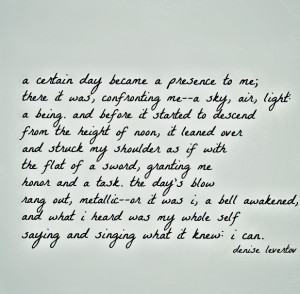 a certain day became a presence to me;
there it was, confronting me--a sky, air, light:
a being. and before it started to descend
from the height of noon, it leaned over
and struck my shoulder as if with
the flat of a sword, granting me
honor and a task. the day's blow
rang out, metallic--or it was i, a bell awakened,
and what i heard was my whole self
saying and singing what it knew: i can.
denise levertov